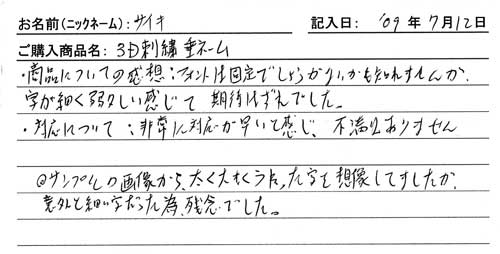 お名前(ニックネーム):サイキ 記入日:'09年7月12日
ご購入商品名:3D刺繍 垂ネーム
・商品についての感想:フォントは固定でしょうがないかも知れませんが、
字が細く弱々しい感じで 期待はずれでした。
・対応について:非常に対応が早いと感じ、不満はありません
◎サンプルの画像から、太く大きくうたった字を想像してましたが、
意外と細い字だった為、残念でした。